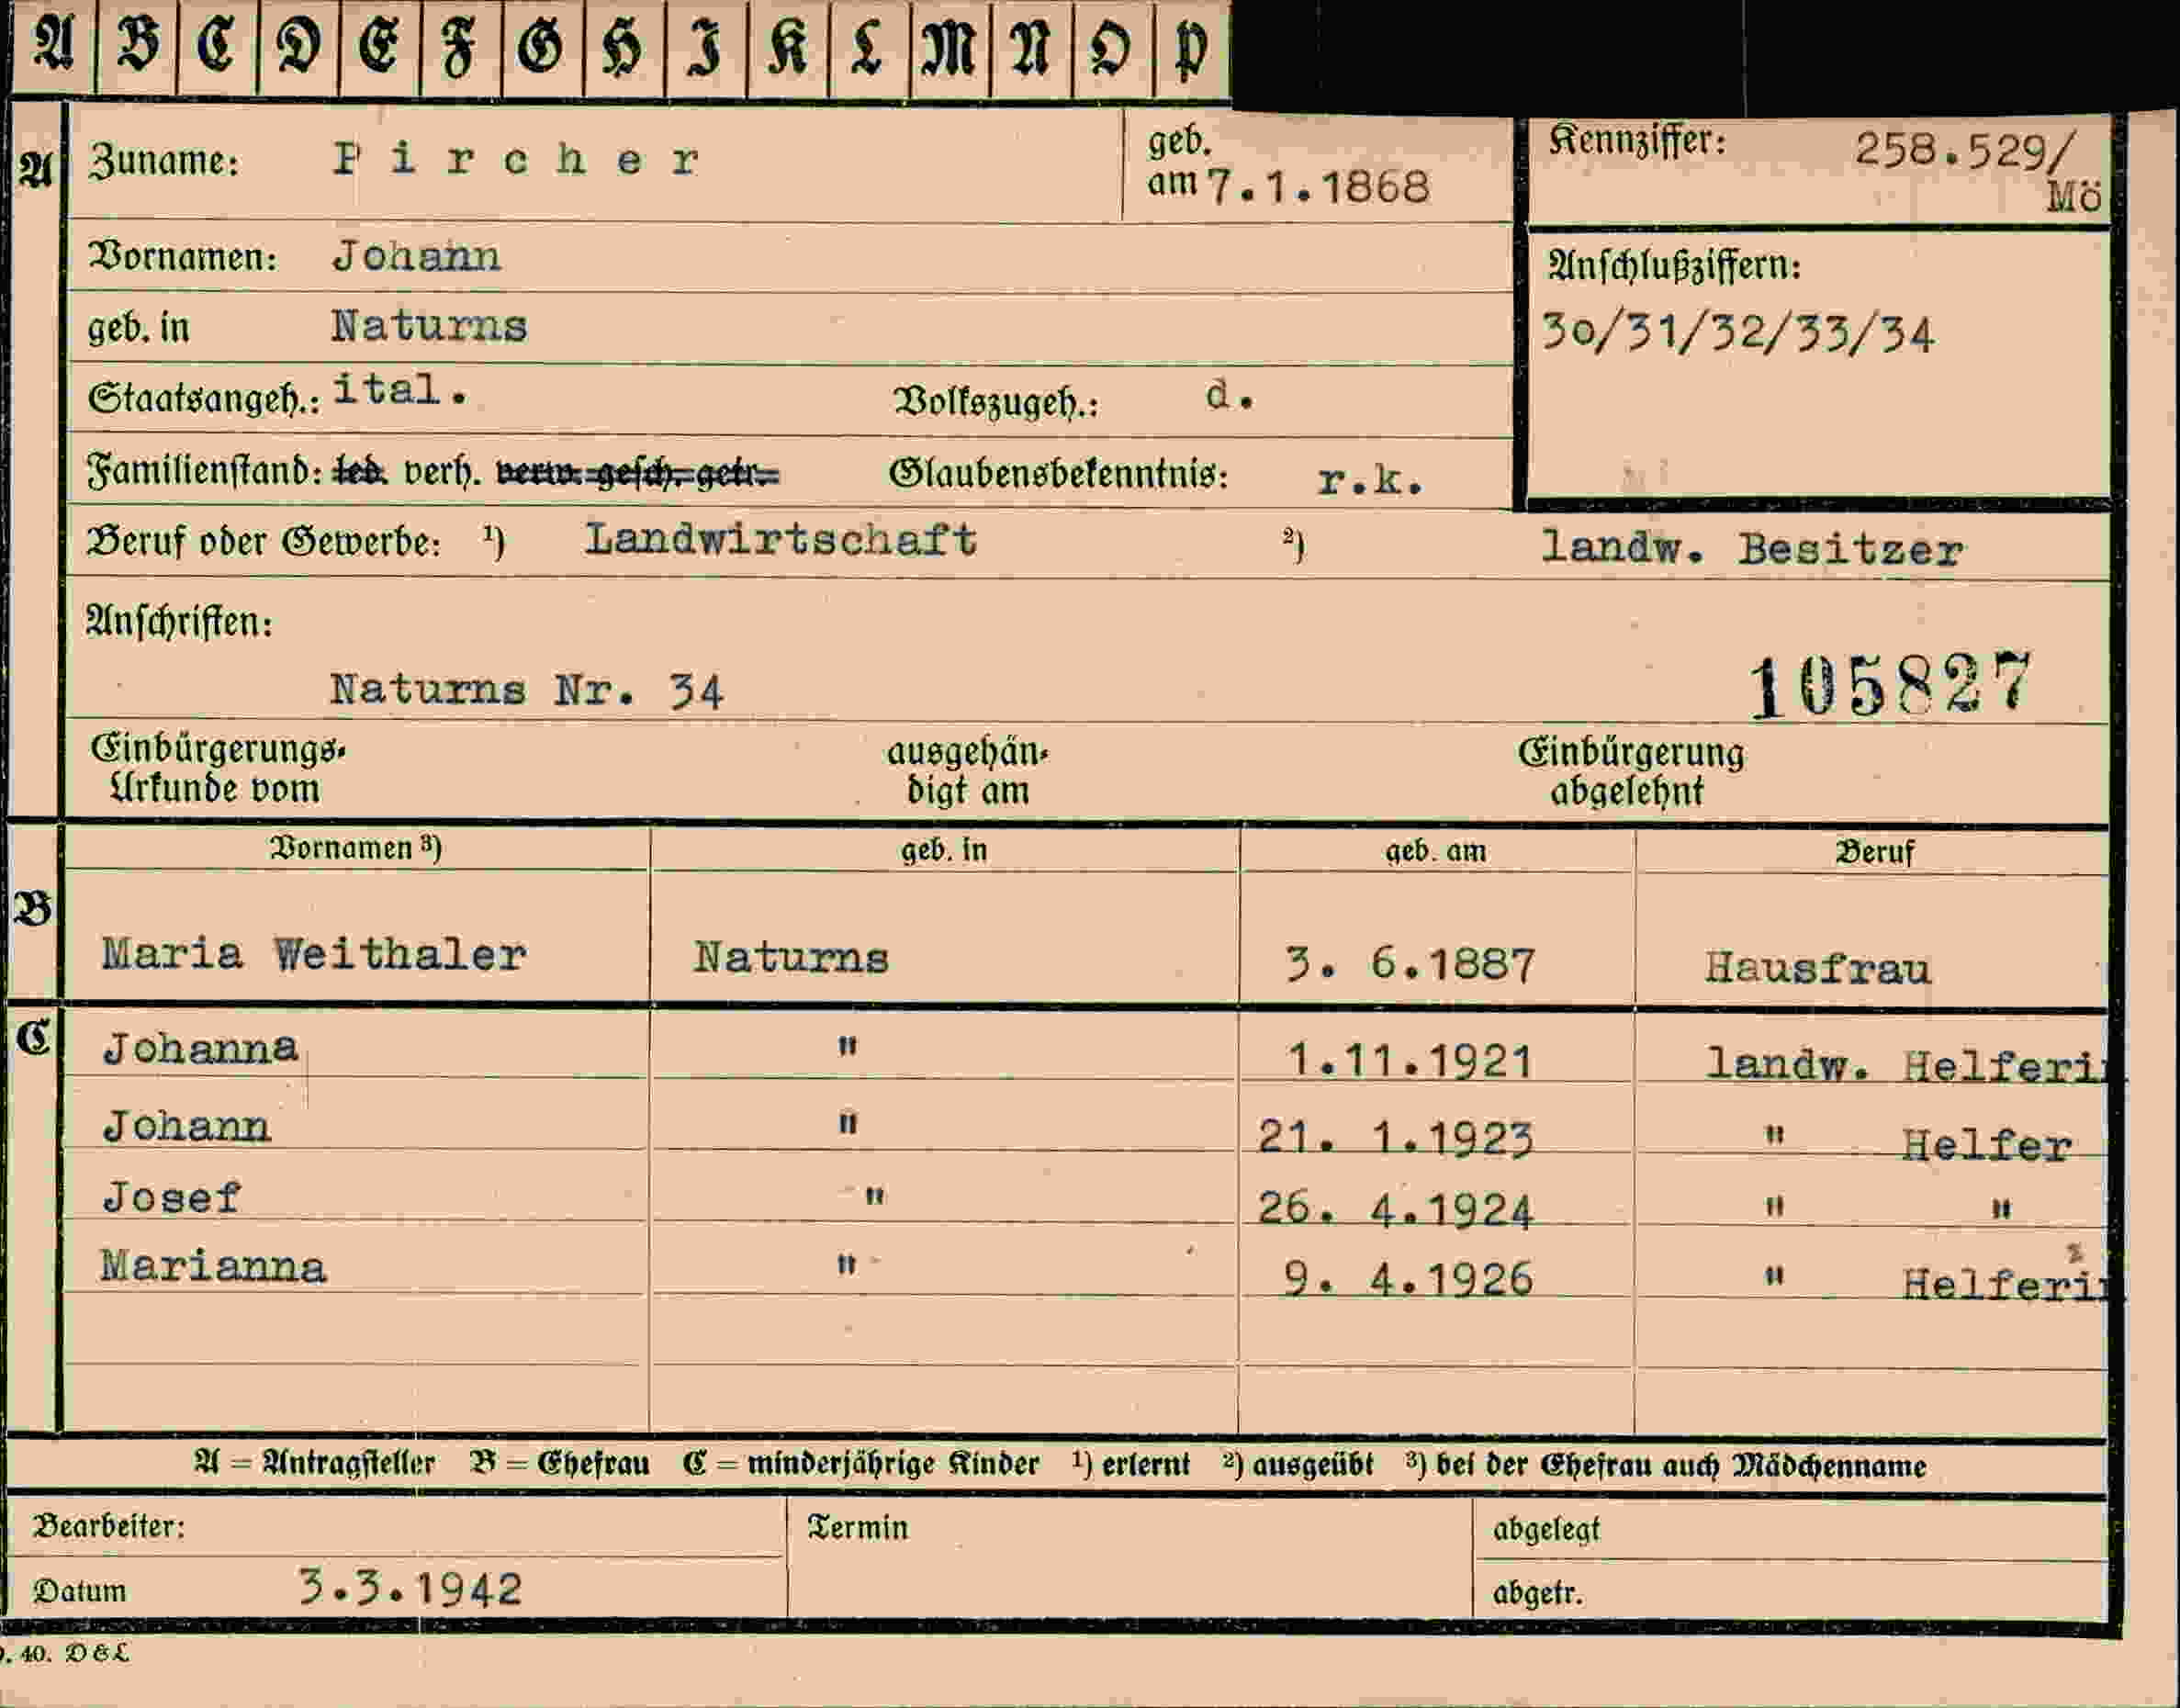 A B C D E F G H I K L M N O P
A Zuname: Pircher geb. am 7.1.1868 Kennziffer: 258.529/ Mö
Vornamen: Johann Anschlußziffern:
geb. in Naturns 30/31/32/33/34
Staatsangeh.: ital. Volkszugeh.: d.
Familienstand: led. verh. verw. gesch. getr. Glaubensbekenntnis: r.k.
Beruf oder Gewerbe: ¹) Landwirtschaft ²) landw. Besitzer
Anschriften:
Naturns Nr. 34 105827
Einbürgerungs- ausgehän- Einbürgerung
Urkunde vom digt am abgelehnt
Vornamen ³) geb. in geb. am Beruf
B Maria Weithaler Naturns 3. 6.1887 Hausfrau
C Johanna " 1.11.1921 landw. Helferin
Johann " 21. 1.1923 " Helfer
Josef " 26. 4.1924 " "
Marianna " 9. 4.1926 " Helferin
A = Antragsteller B = Ehefrau C = minderjährige Kinder ¹) erlernt ²) ausgeübt ³) bei der Ehefrau auch Mädchenname
Bearbeiter: Termin abgelegt
Datum 3.3.1942 abgetr.
. 40. D & L